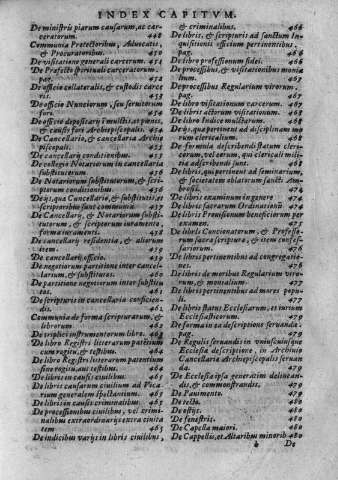 INDEX CAPITVM.
De ministris piarum causarum, ac carceratorum. 448
Communia Protectoribus, Advocatis, & Procuratoribus. 450
De visitatione generali carcerum. 451
De Præfecto spirituali carceratorum. pag. 452
De officio collateralis, & custodis carceris. 453
De officio Nunciorum, seu servitorum fori. 454
De officio depositarij multis, et pænis, & causis fori Archiepiscopalis. 454
De Cancellario, & cancellaria Archiepiscopali. 455
De cancellarij conditionibus. 455
De collegio Notariorum in cancellaria substitutorum. 456
De Notariorum substitutorum, & scriptorum conditionibus. 456
De ijs, qua Cancellario, & substitutis, et scriptoribus sunt communia. 457
De Cancellarij, & Notariorum substitutorum, & scriptorum iuramento, forma iuramenti. 458
De cancellarij residentia, & aliorum item. 459
De cancellarij officio. 459
De negotiorum partitione inter cancellarium, & substitutos. 460
De partitione negotiorum inter substitutos. 461
De scripturis in cancellaria conficiendis. 461
Communia de forma scripturarum, & librorum. 462
De triplici instrumentorum libro. 463
De libro Registri litterarum patentium cum rogitu, & testibus. 464
De libro Registri litterarum patentium sine rogitu, aut testibus. 464
De libris in causis civilibus. 464
De libris causarum civilium ad Vicarium generalem spectantium. 465
De libris in causis criminalibus. 465
De processionibus civilibus, vel criminalibus extraordinarijs extra civitatem 465
De indicibus varijs in libris civilibus,
& criminalibus. 466
De libris, & scripturis ad sanctum Inquisitionis officium pertinentibus. pag. 466
De libro professionum fidei. 466
De processibus, & visitationibus monialium. 467
De processibus Regularium virorum. pag. 467
De libro visitationum carcerum. 467
De libris actorum visitationum. 468
De libro Indice mulctarum. 468
De ijs, qua pertinent ad disciplinam morum clericalium. 468
De formula describendi statum clericorum, vel eorum, qui clericali militia adscribendi sunt. 468
De libris, qui pertinent ad seminarium, & societatem oblatorum sancti Ambrosij. 474
De libris examinum in genere 474
De libris sacrarum Ordinationum 474
De libris Provisionum beneficiorum per examen. 475
De libris Concionatorum, & Professorum sacra scriptura, & item confessariorum. 476
De libris pertinentibus ad congregationes. 476
De libris de moribus Regularium virorum, & monialium. 477
De libris pertinentibus ad mores populi. 477
De libris status Ecclesiarum, et iurium Ecclesiasticorum. 478
De forma in ea descriptione servanda. pag. 479
De Regulis servandis in vniuscuiusque Ecclesia descriptione, in Archivio Cancellaria Archiepiscopalis servanda. 479
De Ecclesia ipsa generatim delineandis, & commonstrandis. 479
De Pauimento. 479
De tecto. 480
De ostijs. 480
De fenestris. 480
De Capella maiori. 480
De Cappellis, et Altaribus minorib 480
De